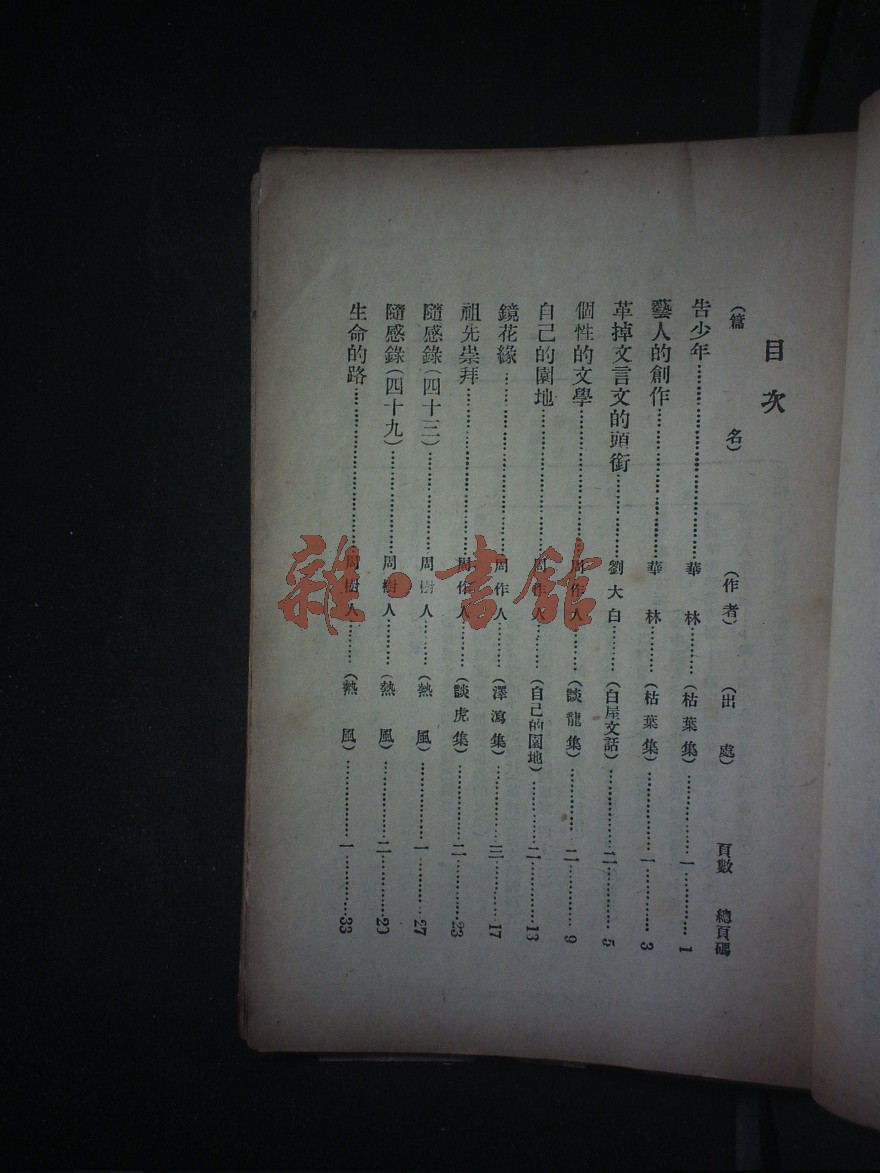 目次
(篇名) (作者) (出處) 頁數 總頁碼
告少年……華林……(枯葉集)……一……1
藝人的創作……華林……(枯葉集)……一……3
革掉文言文的頭銜……劉大白……(白屋文話)……二……5
個性的文學……周作人……(談龍集)……二……9
自己的園地……周作人……(自己的園地)……二……13
鏡花緣……周作人……(澤瀉集)……三……17
祖先崇拜……周作人……(談虎集)……二……23
隨感錄(四十三)……周樹人……(熱風)……一……27
隨感錄(四十九)……周樹人……(熱風)……二……29
生命的路……周樹人……(熱風)……一……33
雜·書館